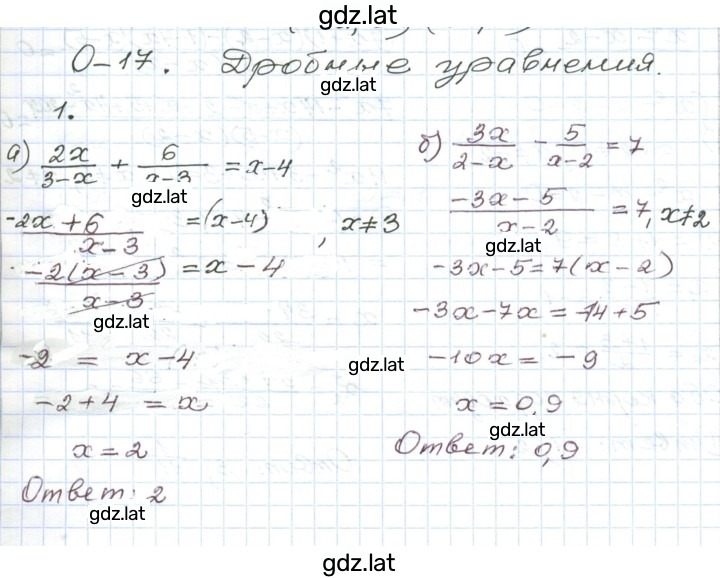 gdz.lat
О-17. Дробные уравнения.
gdz.lat
1.
а) 2x/(3-x) + 6/(x-3) = x-4
gdz.lat
(-2x+6)/(x-3) = (x-4), x≠3
(-2(x-3))/(x-3) = x-4
gdz.lat
-2 = x-4
-2+4 = x
x=2
Ответ: 2
gdz.lat
б) 3x/(2-x) - 5/(x-2) = 7
(-3x-5)/(x-2) = 7, x≠2
gdz.lat
-3x-5=7(x-2)
-3x-7x=-14+5
gdz.lat
-10x=-9
x=0,9
gdz.lat
Ответ: 0,9
gdz.lat